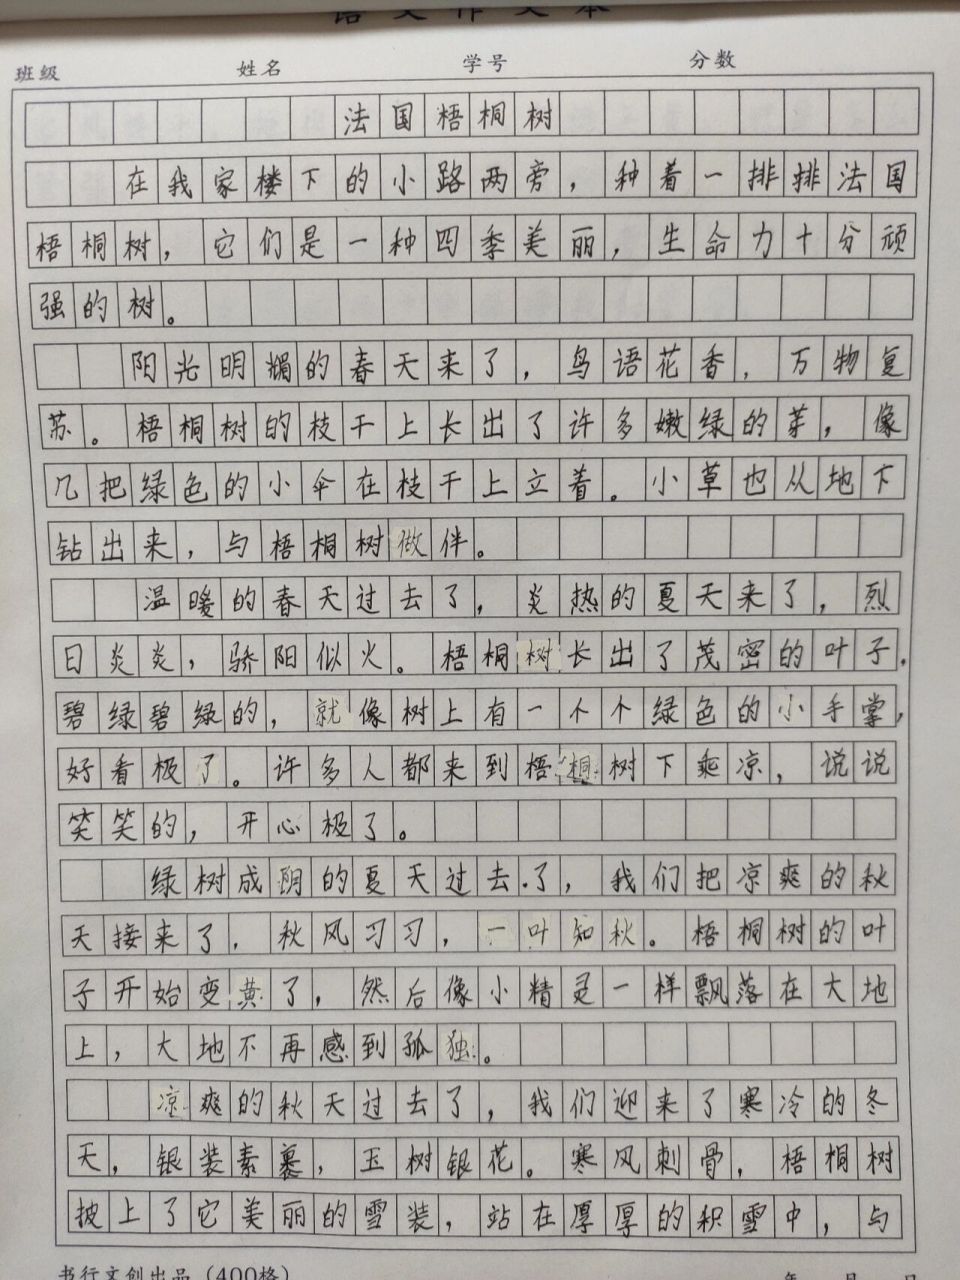 语文作文本
班级 姓名 学号 分数
法国梧桐树
在我家楼下的小路两旁，种着一排排法国
梧桐树，它们是一种四季美丽，生命力十分顽
强的树。
阳光明媚的春天来了，鸟语花香，万物复
苏。梧桐树的枝干上长出了许多嫩绿的芽，像
几把绿色的小伞在枝干上立着。小草也从地下
钻出来，与梧桐树做伴。
温暖的春天过去了，炎热的夏天来了，烈
日炎炎，骄阳似火。梧桐树长出了茂密的叶子，
碧绿碧绿的，就像树上有一个个绿色的小手掌，
好看极了。许多人都来到梧桐树下乘凉，说说
笑笑的，开心极了。
绿树成阴的夏天过去了，我们把凉爽的秋
天接来了，秋风习习，一叶知秋。梧桐树的叶
子开始变黄了，然后像小精灵一样飘落在大地
上，大地不再感到孤独。
凉爽的秋天过去了，我们迎来了寒冷的冬
天，银装素裹，玉树银花。寒风刺骨，梧桐树
披上了它美丽的雪装，站在厚厚的积雪中，与
书行文创出品（400格） 年 月 日